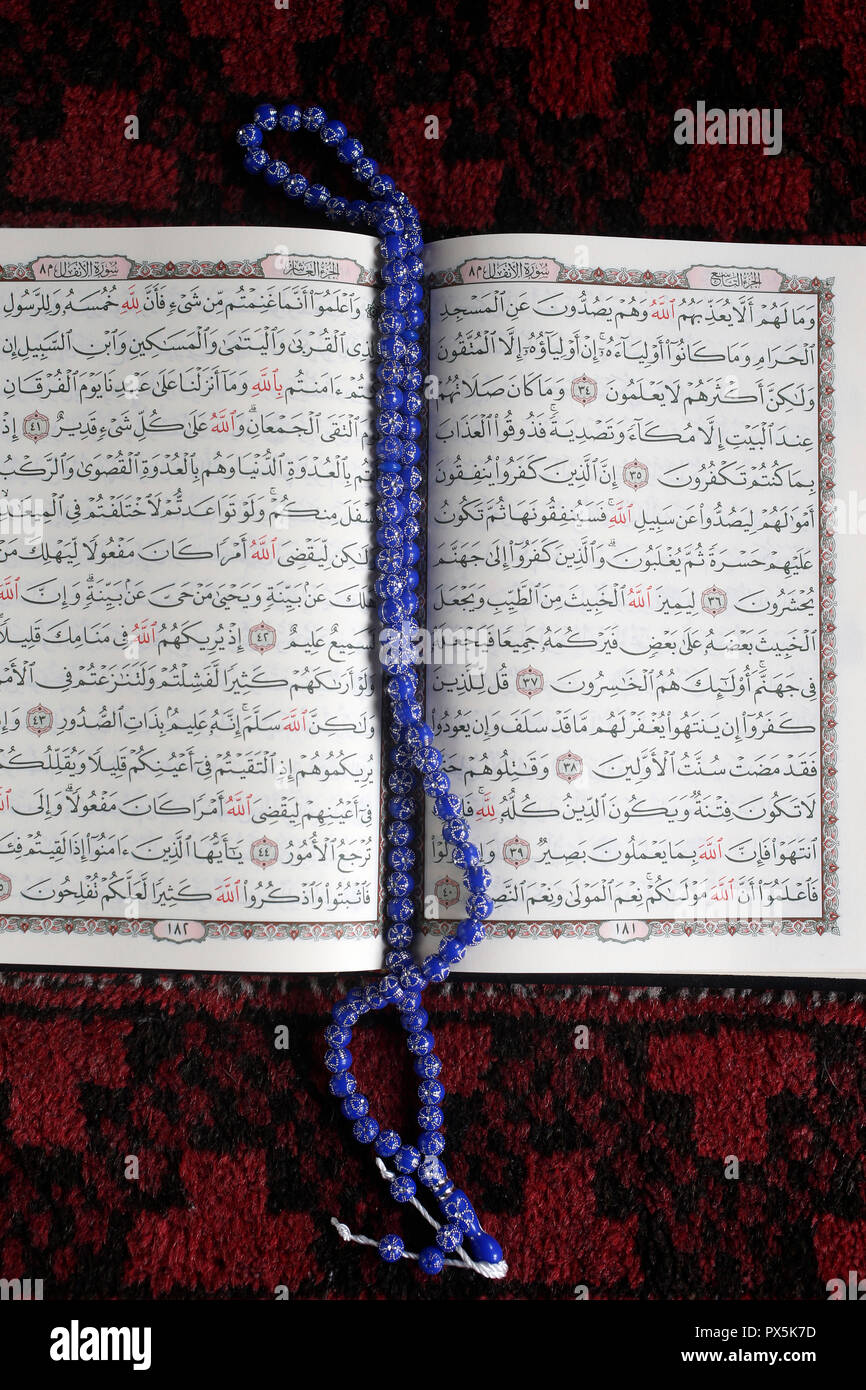 الجزء التاسع
سورة الأنفال ٨
وَمَا لَهُمْ أَلَّا يُعَذِّبَهُمُ ٱللَّهُ وَهُمْ يَصُدُّونَ عَنِ ٱلْمَسْجِدِ
ٱلْحَرَامِ وَمَا كَانُوٓا۟ أَوْلِيَآءَهُۥٓ إِنْ أَوْلِيَآؤُهُۥٓ إِلَّا ٱلْمُتَّقُونَ
وَلَٰكِنَّ أَكْثَرَهُمْ لَا يَعْلَمُونَ ٣٤ وَمَا كَانَ صَلَاتُهُمْ
عِندَ ٱلْبَيْتِ إِلَّا مُكَآءً وَتَصْدِيَةً ۚ فَذُوقُوا۟ ٱلْعَذَابَ
بِمَا كُنتُمْ تَكْفُرُونَ ٣٥ إِنَّ ٱلَّذِينَ كَفَرُوا۟ يُنفِقُونَ
أَمْوَٰلَهُمْ لِيَصُدُّوا۟ عَن سَبِيلِ ٱللَّهِ ۚ فَسَيُنفِقُونَهَا ثُمَّ تَكُونُ
عَلَيْهِمْ حَسْرَةً ثُمَّ يُغْلَبُونَ ۗ وَٱلَّذِينَ كَفَرُوٓا۟ إِلَىٰ جَهَنَّمَ
يُحْشَرُونَ ٣٦ لِيَمِيزَ ٱللَّهُ ٱلْخَبِيثَ مِنَ ٱلطَّيِّبِ وَيَجْعَلَ
ٱلْخَبِيثَ بَعْضَهُۥ عَلَىٰ بَعْضٍ فَيَرْكُمَهُۥ جَمِيعًا فَيَجْعَلَهُۥ
فِى جَهَنَّمَ ۚ أُو۟لَٰٓئِكَ هُمُ ٱلْخَٰسِرُونَ ٣٧ قُل لِّلَّذِينَ
كَفَرُوٓا۟ إِن يَنتَهُوا۟ يُغْفَرْ لَهُم مَّا قَدْ سَلَفَ وَإِن يَعُودُوا۟
فَقَدْ مَضَتْ سُنَّتُ ٱلْأَوَّلِينَ ٣٨ وَقَٰتِلُوهُمْ
لَا تَكُونَ فِتْنَةٌ وَيَكُونَ ٱلدِّينُ كُلُّهُۥ لِلَّهِ ۚ
ٱنتَهَوْا۟ فَإِنَّ ٱللَّهَ بِمَا يَعْمَلُونَ بَصِيرٌ ٣٩
فَٱعْلَمُوٓا۟ أَنَّ ٱللَّهَ مَوْلَىٰكُمْ ۚ نِعْمَ ٱلْمَوْلَىٰ وَنِعْمَ ٤٠
١٨١
الجزء العاشر
سورة الأنفال ٨
وَٱعْلَمُوٓا۟ أَنَّمَا غَنِمْتُم مِّن شَىْءٍ فَأَنَّ لِلَّهِ خُمُسَهُۥ وَلِلرَّسُولِ
ٱلْقُرْبَىٰ وَٱلْيَتَٰمَىٰ وَٱلْمَسَٰكِينِ وَٱبْنِ ٱلسَّبِيلِ إِن
ءَامَنتُم بِٱللَّهِ وَمَآ أَنزَلْنَا عَلَىٰ عَبْدِنَا يَوْمَ ٱلْفُرْقَانِ
ٱلْتَقَى ٱلْجَمْعَانِ ۗ وَٱللَّهُ عَلَىٰ كُلِّ شَىْءٍ قَدِيرٌ ٤١ إِذْ
بِٱلْعُدْوَةِ ٱلدُّنْيَا وَهُم بِٱلْعُدْوَةِ ٱلْقُصْوَىٰ وَٱلرَّكْبُ
مِنكُمْ ۚ وَلَوْ تَوَاعَدتُّمْ لَٱخْتَلَفْتُمْ فِى
وَلَٰكِن لِّيَقْضِىَ ٱللَّهُ أَمْرًا كَانَ مَفْعُولًا لِّيَهْلِكَ مَنْ
هَلَكَ عَنۢ بَيِّنَةٍ وَيَحْيَىٰ مَنْ حَىَّ عَنۢ بَيِّنَةٍ ۗ وَإِنَّ ٱللَّهَ
لَسَمِيعٌ عَلِيمٌ ٤٢ إِذْ يُرِيكَهُمُ ٱللَّهُ فِى مَنَامِكَ قَلِيلًا
وَلَوْ أَرَىٰكَهُمْ كَثِيرًا لَّفَشِلْتُمْ وَلَتَنَٰزَعْتُمْ فِى
وَلَٰكِنَّ ٱللَّهَ سَلَّمَ ۗ إِنَّهُۥ عَلِيمٌۢ بِذَاتِ ٱلصُّدُورِ ٤٣
يُرِيكُمُوهُمْ إِذِ ٱلْتَقَيْتُمْ فِىٓ أَعْيُنِكُمْ قَلِيلًا وَيُقَلِّلُكُمْ
فِىٓ أَعْيُنِهِمْ لِيَقْضِىَ ٱللَّهُ أَمْرًا كَانَ مَفْعُولًا ۗ وَإِلَى
تُرْجَعُ ٱلْأُمُورُ ٤٤ يَٰٓأَيُّهَا ٱلَّذِينَ ءَامَنُوٓا۟ إِذَا لَقِيتُمْ
فَٱثْبُتُوا۟ وَٱذْكُرُوا۟ ٱللَّهَ كَثِيرًا لَّعَلَّكُمْ تُفْلِحُونَ
١٨٢
alamy
Image ID: PX5K7D
www.alamy.com